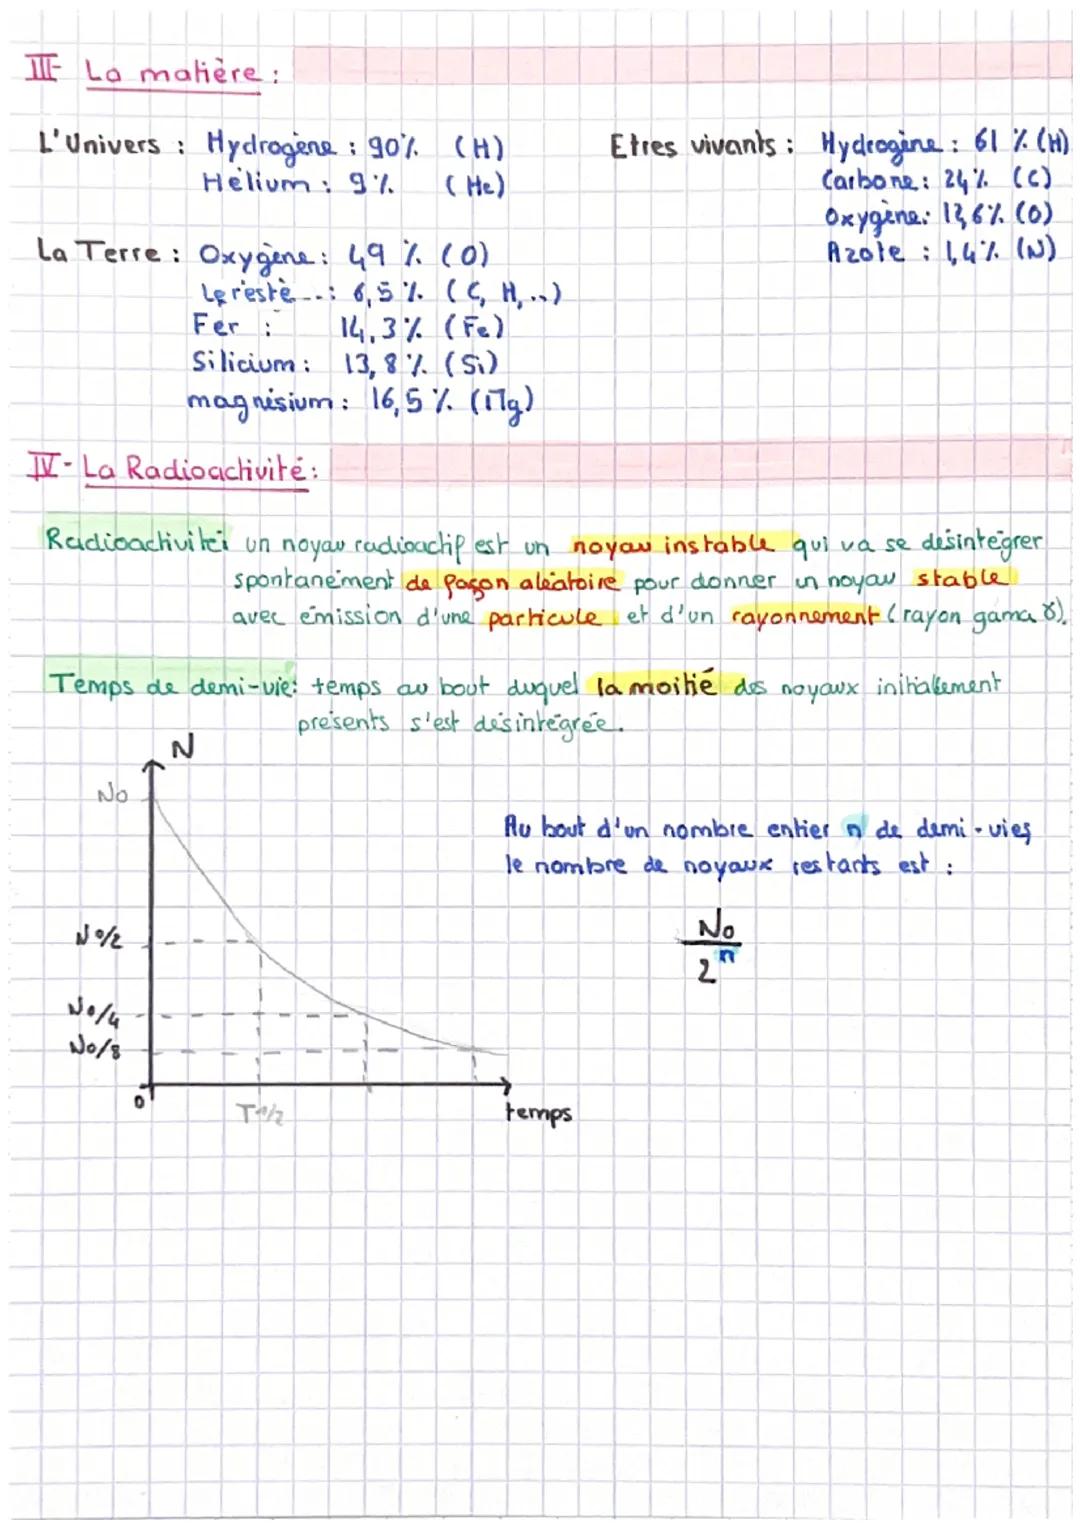 III- La matière :
L'Univers : Hydrogène : 90% (H)
Hélium : 9% (He)
Etres vivants : Hydrogène : 61 % (H)
Carbone : 24% (C)
Oxygène : 12,6% (O)
Azote : 1,4% (N)
La Terre : Oxygène : 49 % (O)
Le reste ..: 6,5 % (C, H, ..)
Fer : 14,3% (Fe)
Silicium : 13,8% (Si)
magnésium : 16,5 % (Mg)
IV- La Radioactivité :
Radioactivité: un noyau radioactif est un noyau instable qui va se désintégrer
spontanément de façon aléatoire pour donner un noyau stable
avec émission d'une particule et d'un rayonnement (rayon gama γ).
Temps de demi-vie: temps au bout duquel la moitié des noyaux initialement
présents s'est désintégrée.
N
No
No/2
No/4
No/8
0
T1/2
temps
Au bout d'un nombre entier n de demi-vies
le nombre de noyaux restants est :
No
2^n